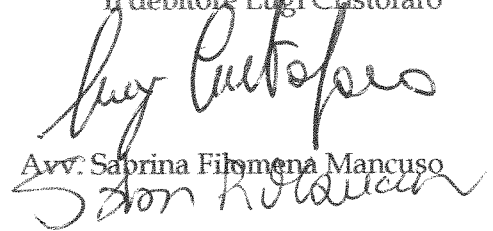 Il debitore Luigi Cristofaro
Luigi Cristofaro
Avv. Sabrina Filomena Mancuso